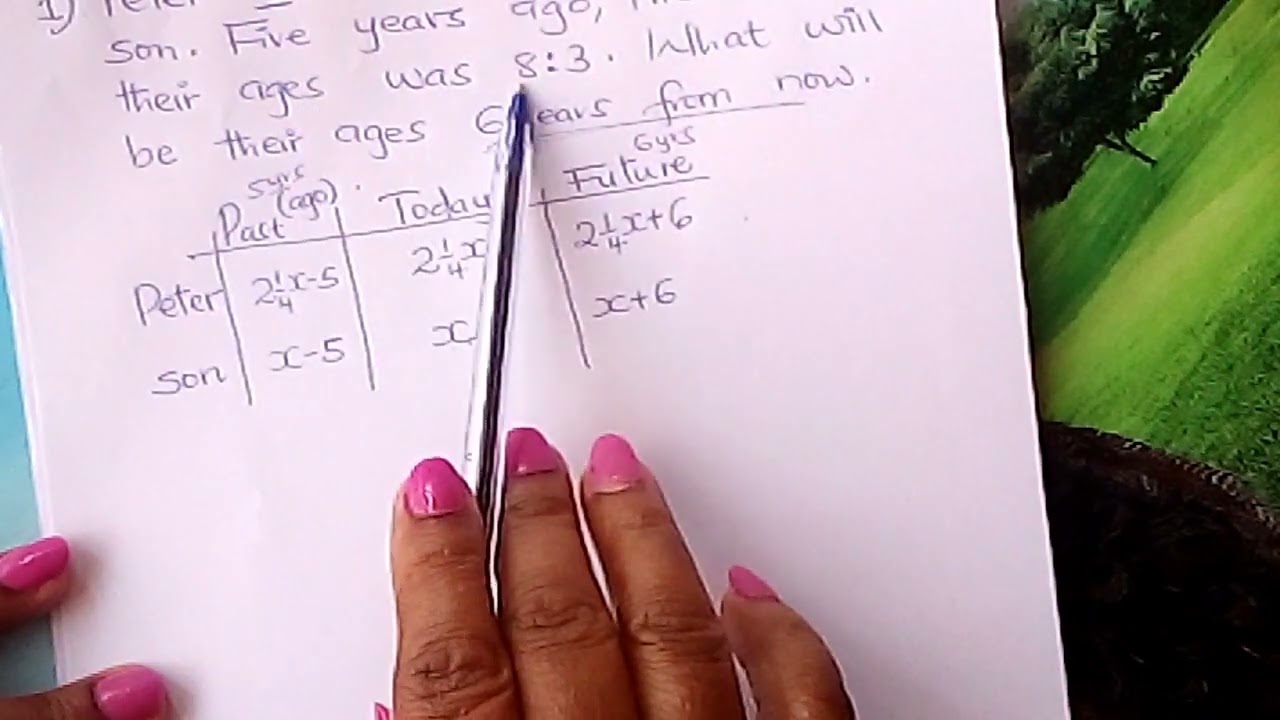 1)
son. Five years ago,
their ages was 8:3. What will
be their ages 6 years from now.
5yrs 6yrs
Past (ago) Today Future
Peter 2 1/4 x-5 2 1/4 x 2 1/4 x+6
son x-5 x x+6